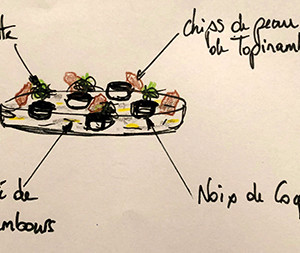 te
chips de peau
de Topinamb
é de
mbours
Noix de Coq